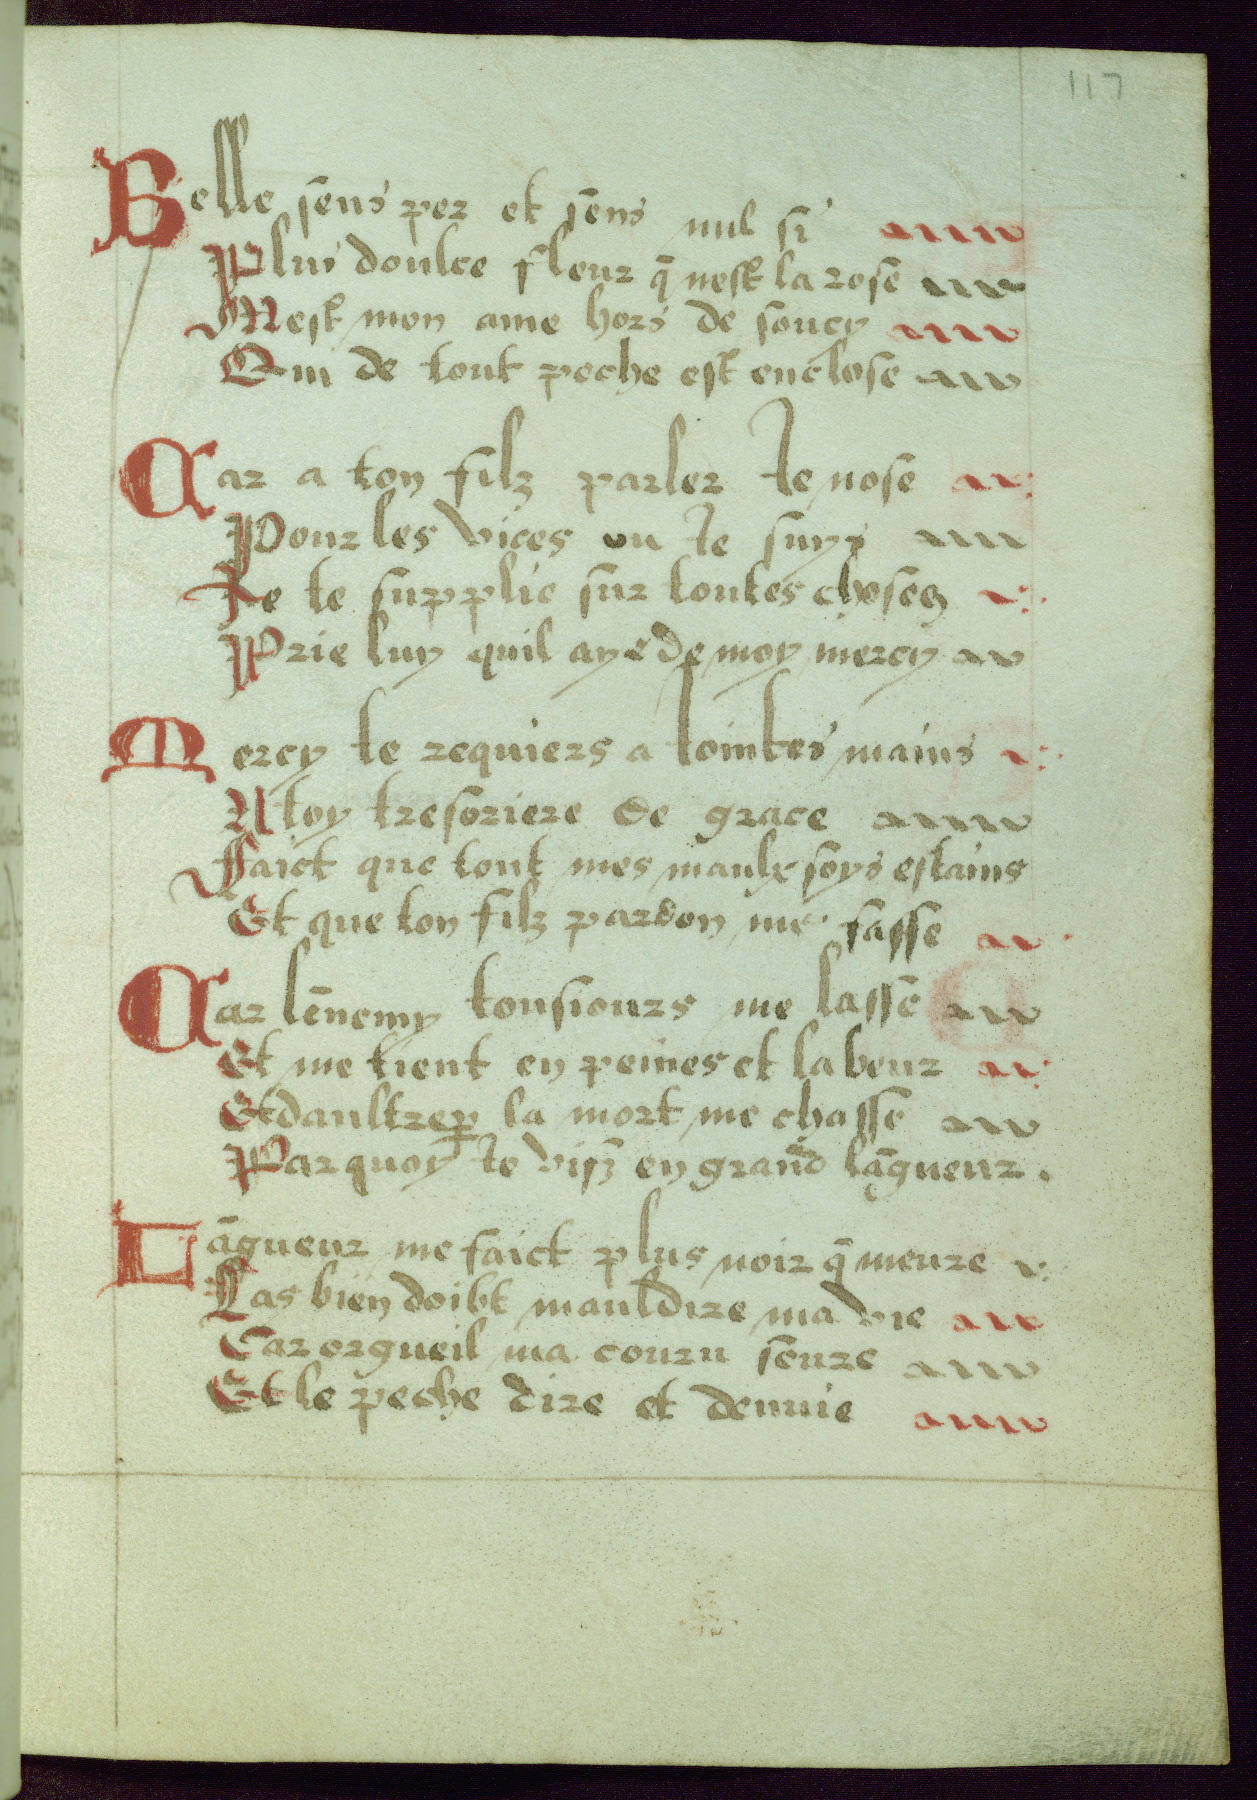 117
Belle sēns per et sēns nul si
Plus doulce fleur q̄ nest la rose
Mest mon ame hors de soucy
Qui de tout peche est enclose
Car a ton filz parler Ie nose
Pour les vices ou Ie suys
Ie te supplie sur toutes choses
Prie luy quil aye de moy mercy
Mercy te requiers a Iointes mains
A toy tresoriere de grace
Faict que tout mes maulx soys estains
Et que ton filz pardon me fasse
Car lēnemy tousiours me lasse
Et me tient en peines et labeur
Et daultre ꝑ la mort me chasse
Par quoy Ie vis en grand lāgueur.
Lāgueur me faict plus noir q̄ meure
Las bien doibt mauldire ma vie
Car orgueil ma couru seure
Et le peche dire et denuie